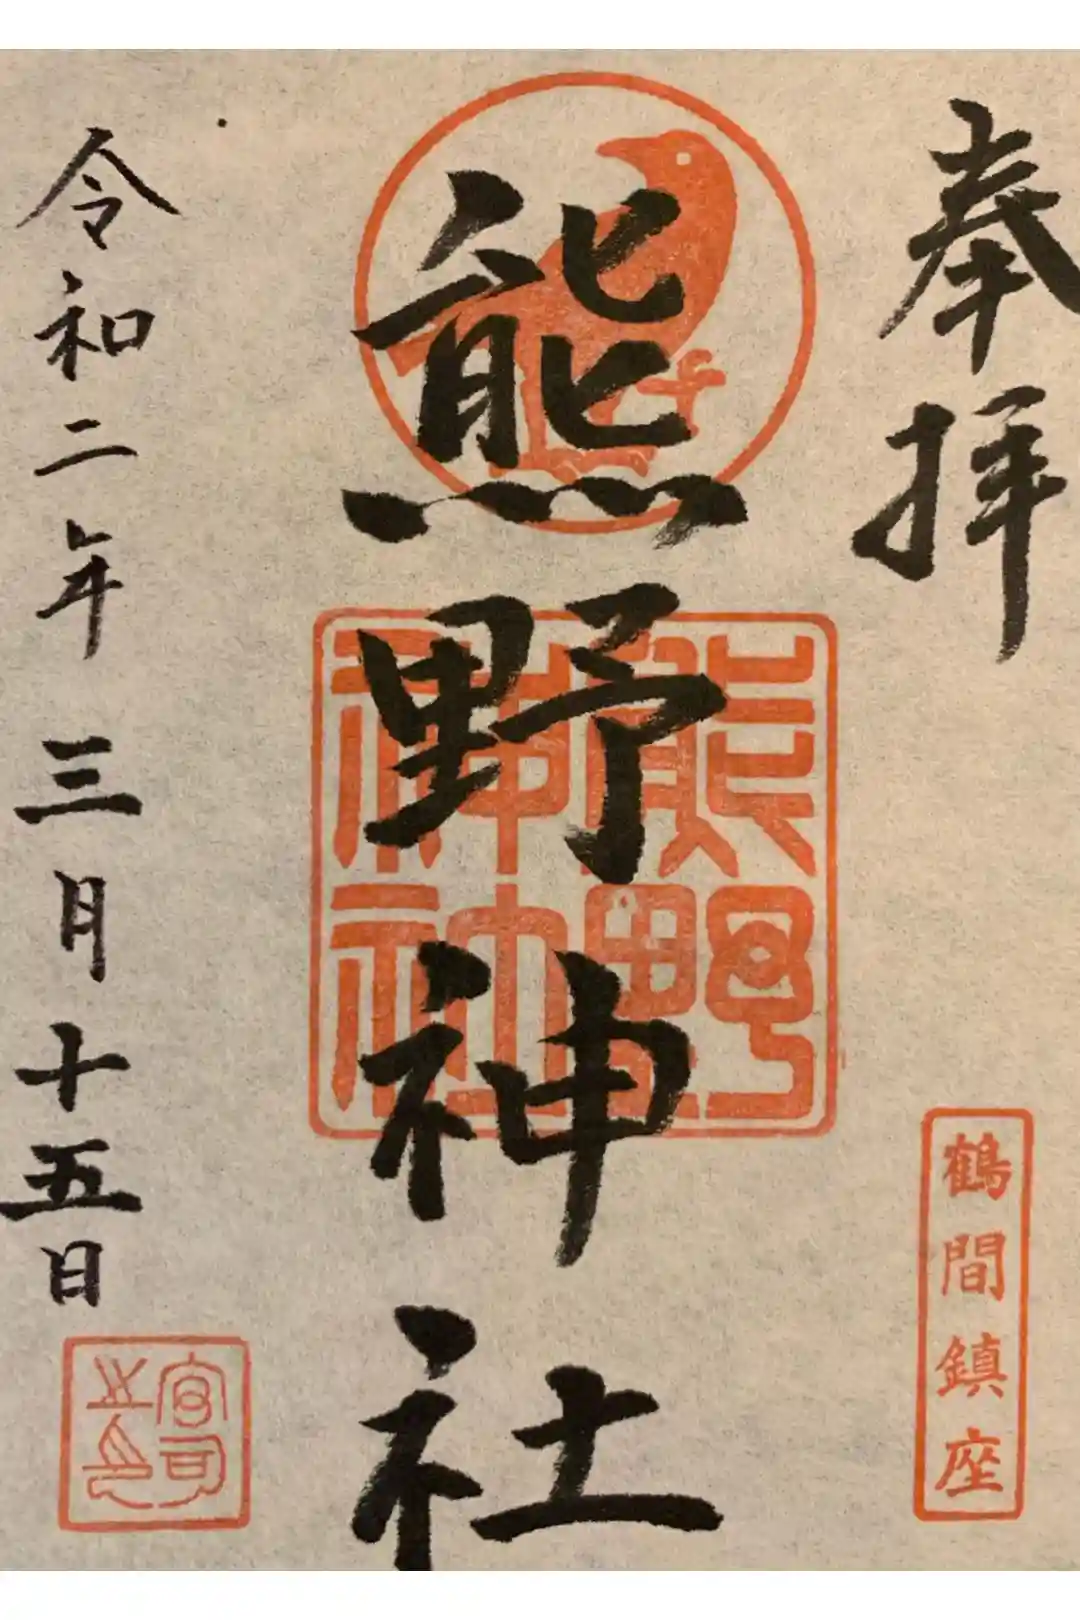 奉拝
鶴間鎮座
熊野神社
熊野
神社
令和二年三月十五日
宮司
之印